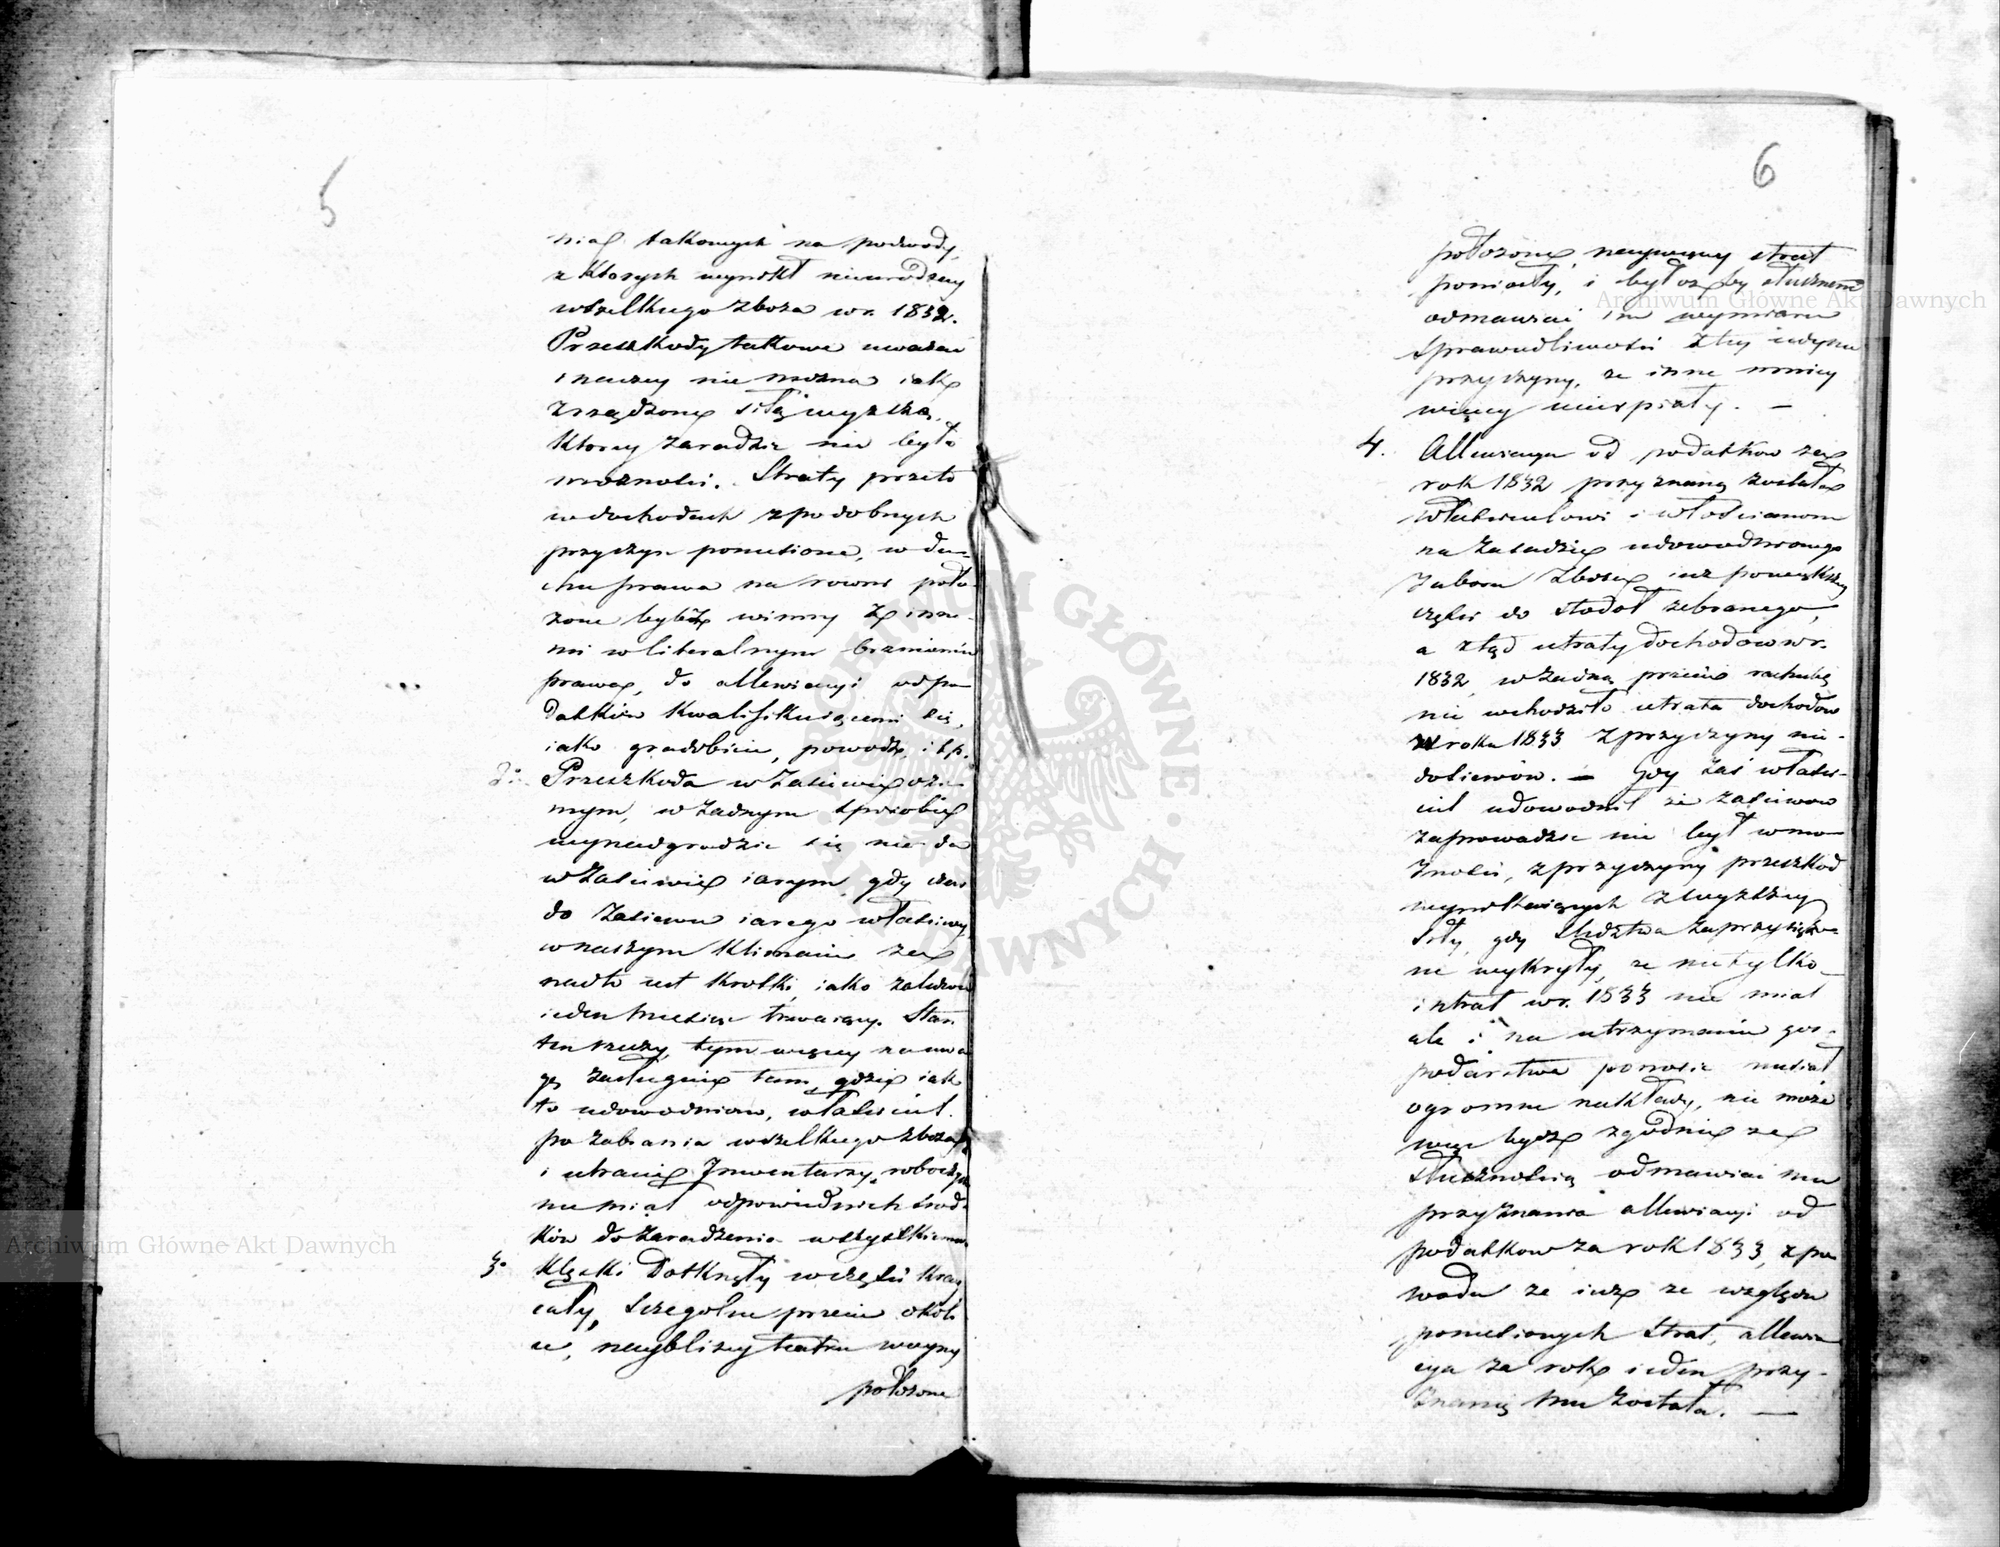 5
nia takowych na podwody,
z których wynikł nieurodzay
wszelkiego zboża w r. 1832.
Przeszkody takowe uważać
inaczey nie można iak
zrządzone siłą wyższą,
ktorey zaradzić nie było
możności. Straty przeto
w dochodach z podobnych
przyczyn poniesione, w du-
chu prawa na rowni poło-
zone bydź winny z inne-
mi w literalnym brzmieniu
prawa, do allewiacyi od po-
datków kwalifikuiącemi się,
iako gradobicie, powodź, i t. p.
2o. Przeszkoda w zasiewie ozi-
mym, w żadnym sposobie
wynadgrodzić się nie da
w zasiewie iarym, gdy czas
do zasiewu iarego właściwy
w naszym klimacie za
nadto iest krotki, iako zaledwie
ieden miesiąc trwaiący. Stan
ten rzeczy, tym więcey na uwa-
gę zasługuie tam, gdzie iak
to udowodniono, właściciel
po zabraniu wszelkiego zboża
i utracie Inwentarzy roboczych
nie miał odpowiednich środ-
ków do zaradzenia wszystkiemu
3o Klęski dotknęły w części kray
cały, szczególnie przecie okoli-
ce, naybliżey teatru woyny
położone
6
położone, naywięcey strat
poniosły, i byłoż by słusznem
odmawiać im wymiaru
sprawiedliwości z tey iedynie
przyczyny, że inne mniey
więcey ucierpiały. —
4. Allewiacya od podatków za
rok 1832 przyznaną została
Właścicielowi i włościanom
na zasadzie udowodnionego
zaboru zboża iuż po większey
części do stodoł zebranego,
a ztąd utraty dochodów w r.
1832, w żadną przecie rachubę
nie wchodziło utrata dochodów
z roku 1833 z przyczyny nie-
dosiewów. — Gdy zaś właści-
ciel udowodnił że zasiewow
zaprowadzić nie był w mo-
żności, z przyczyny przeszkod
wynikaiących z wyższey
siły, gdy śledztwa zaprzysiężo-
ne wykryły, że nie tylko
intrat w r. 1833 nie miał
ale i na utrzymanie gos-
podarstwa ponosić musiał
ogromne nakłady, nie może
więc bydź zgodnie ze
słusznością odmawiać mu
przyznania allewiacyi od
podatkow za rok 1833, z po-
wodu że iuż ze względu
poniesionych strat, allewia-
cya za rok ieden przy-
znaną mu została. —
Archiwum Główne Akt Dawnych
Archiwum Główne Akt Dawnych
ARCHIWUM GŁÓWNE AKT DAWNYCH